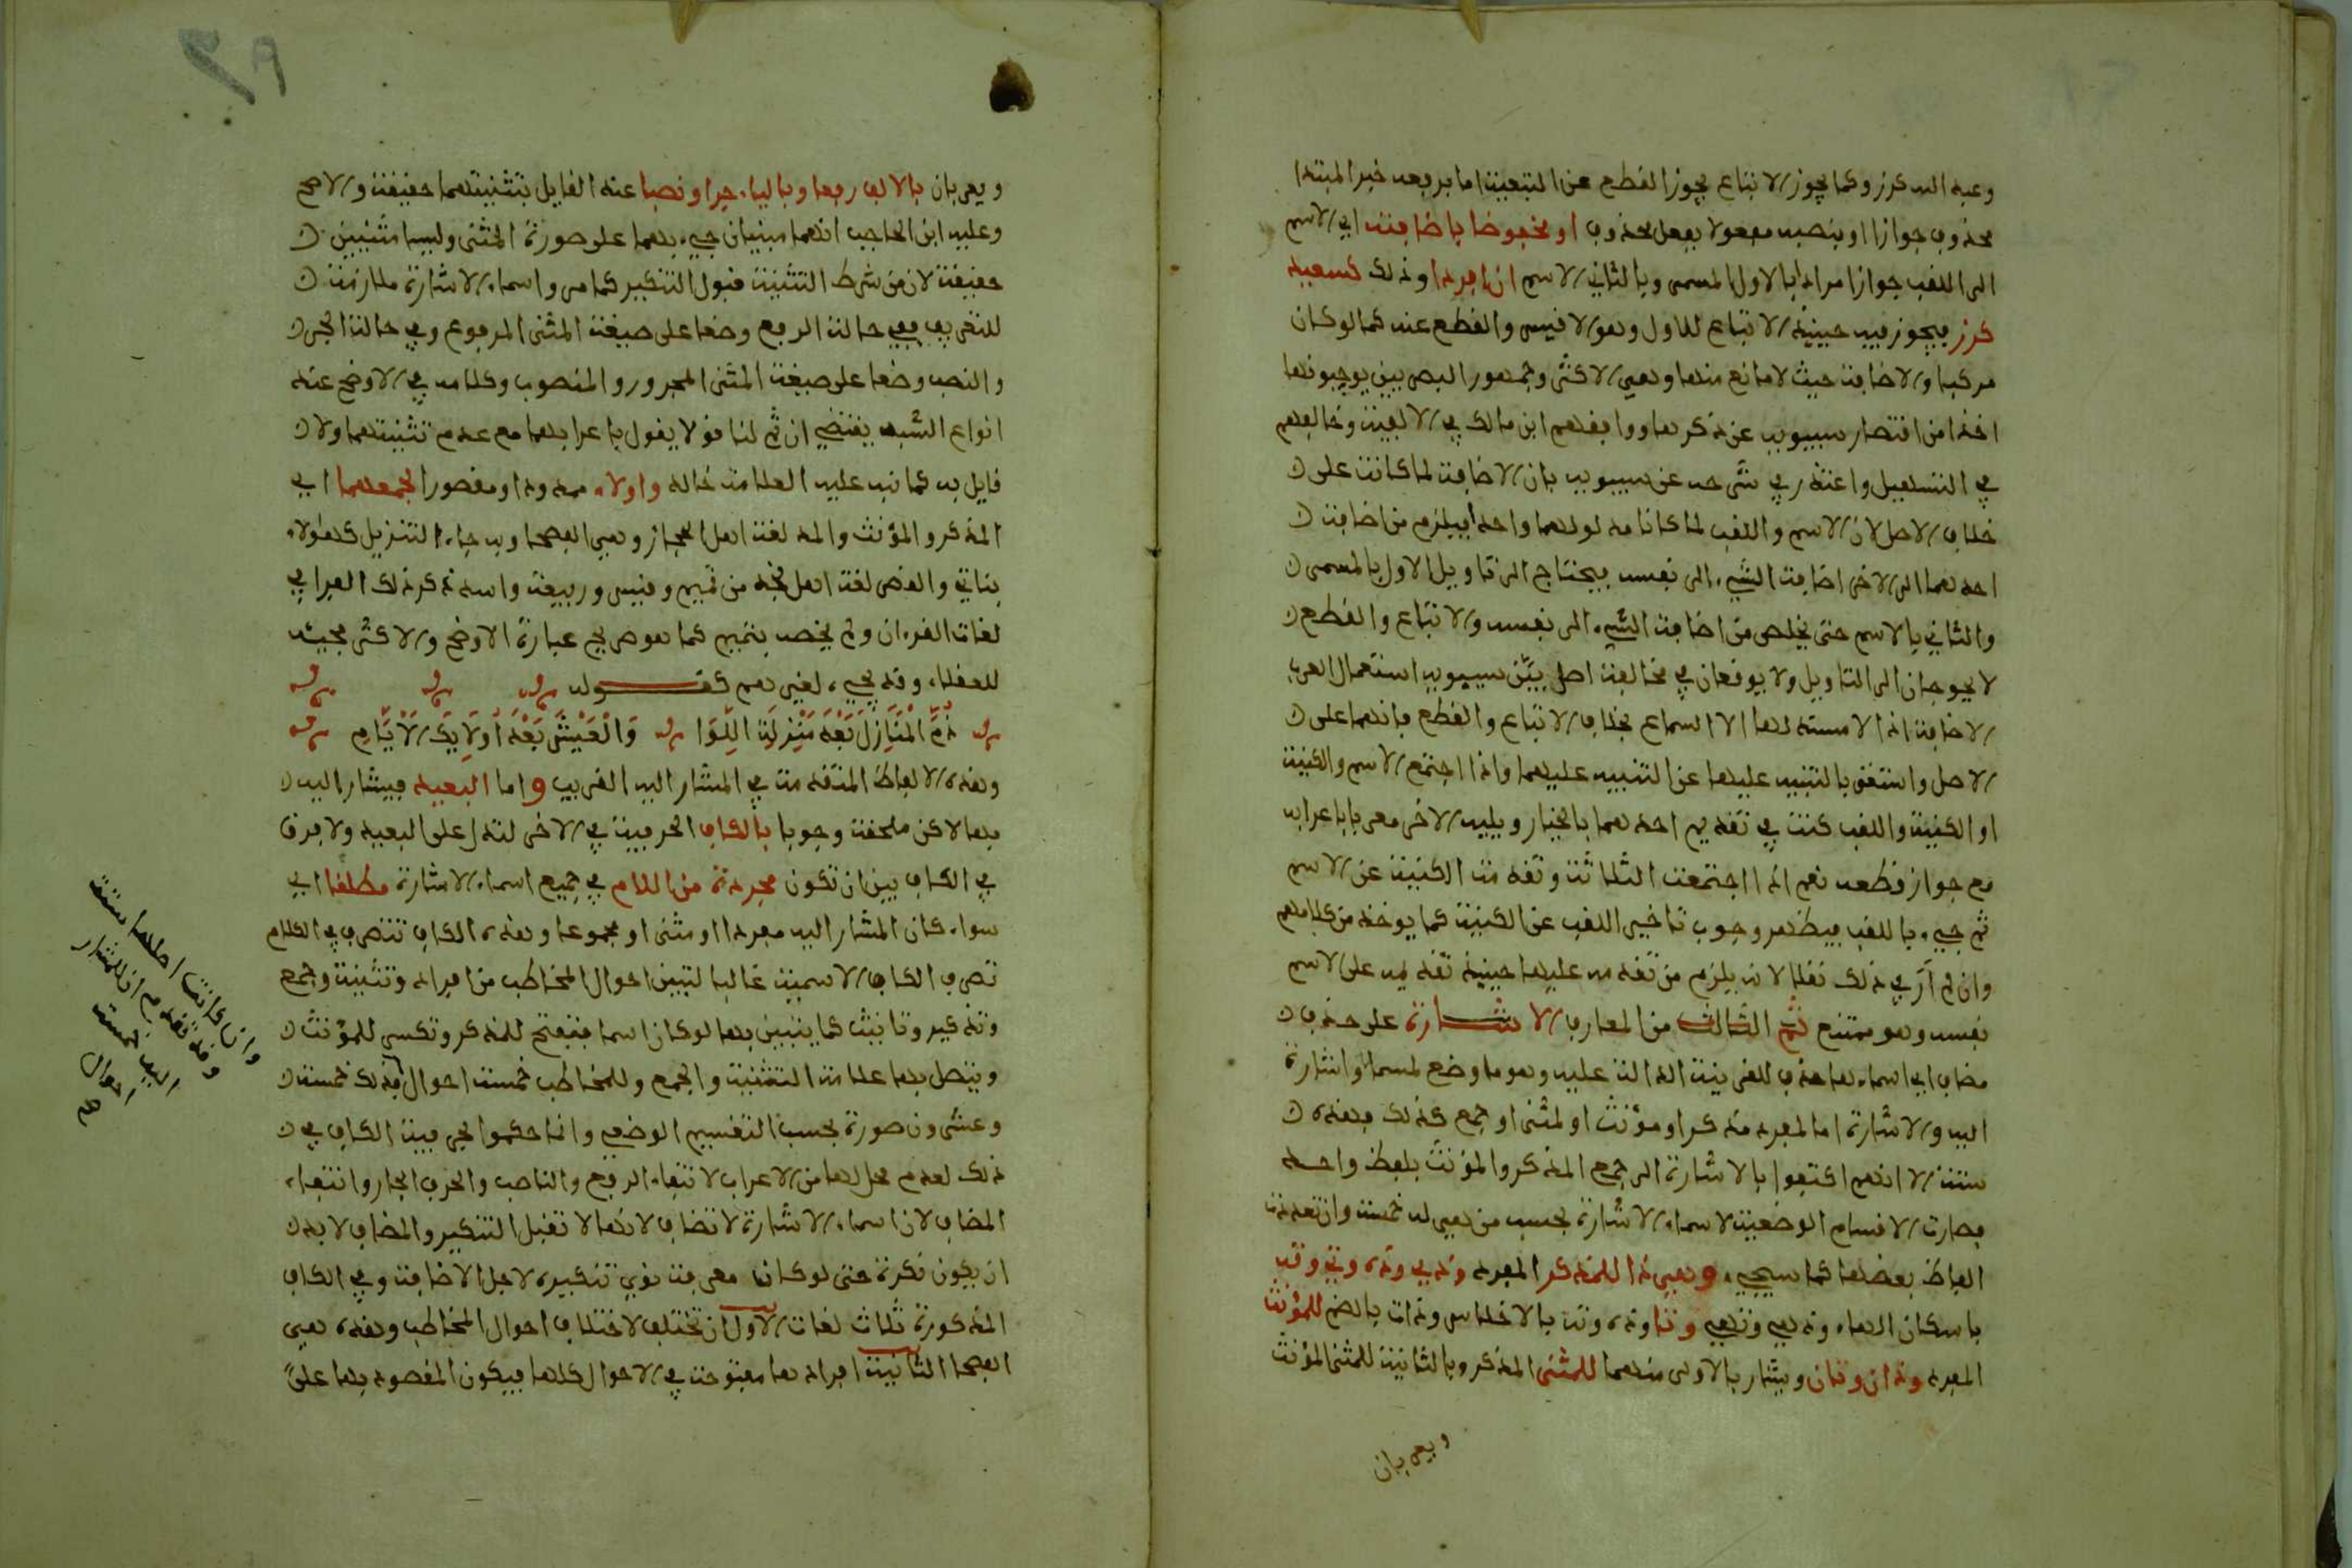 وعبد الله كرز وكما يجوز الاتباع يجوز القطع عن التبعية اما برفعه خبر المبتدا
محذوف جوازا او بنصبه مفعولا بفعل محذوف او مخفوضا باضافت اي الاسم
الى اللقب جوازا مرادا بالاول المسمى وبالثاني الاسم ان افردا وذلك كسعيد
كرز فيجوز فيه حينيذ الاتباع للاول وهو الاقيس والقطع عنه كما لو كان
مركبا والاضافة حيث لا مانع منها وهي الاكثر وجمهور البصريين يوجبونها
اخذا من اقتصار سيبويه عن ذكرها ووافقهم ابن مالك في الالفية وخالفهم
في التسهيل واعتذر في شرحه عن سيبويه بان الاضافة لما كانت على
خلاف الاصل لان الاسم واللقب لما كانا مدلولهما واحدا فيلزم من اضافة
احدهما الى الاخر اضافة الشيء الى نفسه فيحتاج الى تاويل الاول بالمسمى
والثاني بالاسم حتى يخلص من اضافة الشيء الى نفسه والاتباع والقطع
لا يحوجان الى التاويل ولا يوقعان في مخالفة اصل بيّن سيبويه استعمال العرب
الاضافة اذ لا مستند لها الا السماع بخلاف الاتباع والقطع فانهما على
الاصل واستغنى بالتنبيه عليها عن التنبيه عليهما واذا اجتمع الاسم والكنية
او الكنية واللقب كنت في تقديم احدهما بالخيار ويليه الاخر معربا باعرابه
مع جواز قطعه نعم اذا اجتمعت الثلاثة وتقدمت الكنية عن الاسم
ثم جيء باللقب فيظهر وجوب تاخير اللقب عن الكنية كما يوخذ من كلامهم
وان لم أر في ذلك نقلا لانه يلزم من تقدمه عليها حينيذ تقديمه على الاسم
نفسه وهو ممتنع ثم الثالث من المعارف الاشارة على حذف
مضاف اي اسماءها حذف للقرينة الدالة عليه وهو ما وضع لمسما واشارة
اليه والاشارة اما لمفرد مذكر او مؤنث او لمثنى او جمع كذلك فهذه
ستة الا انهم اكتفوا بالاشارة الى جمع المذكر والمؤنث بلفظ واحد
فصارت الاقسام الوضعية لاسماء الاشارة بحسب من هي له خمسة وان تعددت
الفاظ بعضها كما سيجيء وهي ذا للمذكر المفرد وذي وذه وتي وته
باسكان الهاء وذهي وتهي وتا وذه وته بالاختلاس وذات بالضم للمؤنث
المفرد وذان وتان ويشار بالاولى منهما للمثنى المذكر وبالثانية للمثنى المؤنث
ويعربان
ويعربان بالالف رفعا وبالياء جرا ونصبا عند القايل بتثنيتهما حقيقة والاصح
وعليه ابن الحاجب انهما مبنيان جيء بهما على صورة المثنى وليسا مثنيين
حقيقة لان من شرط التثنية قبول التنكير كما مر واسماء الاشارة ملازمة
للتعريف ففي حالة الرفع وضعا على صيغة المثنى المرفوع وفي حالة الجر
والنصب وضعا على صيغة المثنى المجرور والمنصوب وكلامه في الاوضح عند
انواع الشبه يقتضي ان ثم لنا قولا يقول باعرابهما مع عدم تثنيتهما ولا
قايل به كما نبه عليه العلامة خالد واولاء ممدودا ومقصورا لجمعهما اي
المذكر والمؤنث والمد لغة اهل الحجاز وهي الفصحا وبه جاء التنزيل كهؤلاء
بناتي والقصر لغة اهل نجد من تميم وقيس وربيعة واسد ذكر ذلك الفرا في
لغات القرءان ولم يخصه بتميم كما هو صريح عبارة الاوضح والاكثر مجيئه
للعقلاء وقد يجيء لغيرهم كقوله
ذُمَّ الْمَنَازِلَ بَعْدَ مَنْزِلَةِ اللِّوَا وَالْعَيْشَ بَعْدَ أُولَايِكَ الْأَيَّامِ
وهذه الالفاظ المتقدمة في المشار اليه القريب واما البعيد فيشار اليه
بها لاكن ملحقة وجوبا بالكاف الحرفية في الاخر لتدل على البعيد ولا فرق
في الكاف بين ان تكون مجردة من اللام في جميع اسماء الاشارة مطلقا اي
سواء كان المشار اليه مفردا او مثنى او مجموعا وهذه الكاف تتصرف في الكلام
تصرف الكاف الاسمية غالبا لتبين احوال المخاطب من افراد وتثنية وجمع
وتذكير وتانيث كما يتبين بها لو كان اسما فتفتح للمذكر وتكسر للمؤنث
ويتصل بها علامة التثنية والجمع وللمخاطب خمسة احوال فذلك خمسة
وعشرون صورة بحسب التقسيم الوضعي وانما حكموا بحرفية الكاف في
ذلك لعدم محل لها من الاعراب لانتفاء الرفع والناصب والحرف الجار وانتفاء
المضاف لان اسماء الاشارة لا تضاف لانها لا تقبل التنكير والمضاف لا بد
ان يكون نكرة حتى لو كان معرفة نوي تنكيره لاجل الاضافة وفي الكاف
المذكورة ثلاث لغات الاول ان تختلف لاختلاف احوال المخاطب وهذه هي
الفصحا الثانية افرادها مفتوحة في الاحوال كلها فيكون المقصود بها على
وان كانت اصلها ستة
وقد تقدم ان للمشار
اليه خمسة
احوال
صح